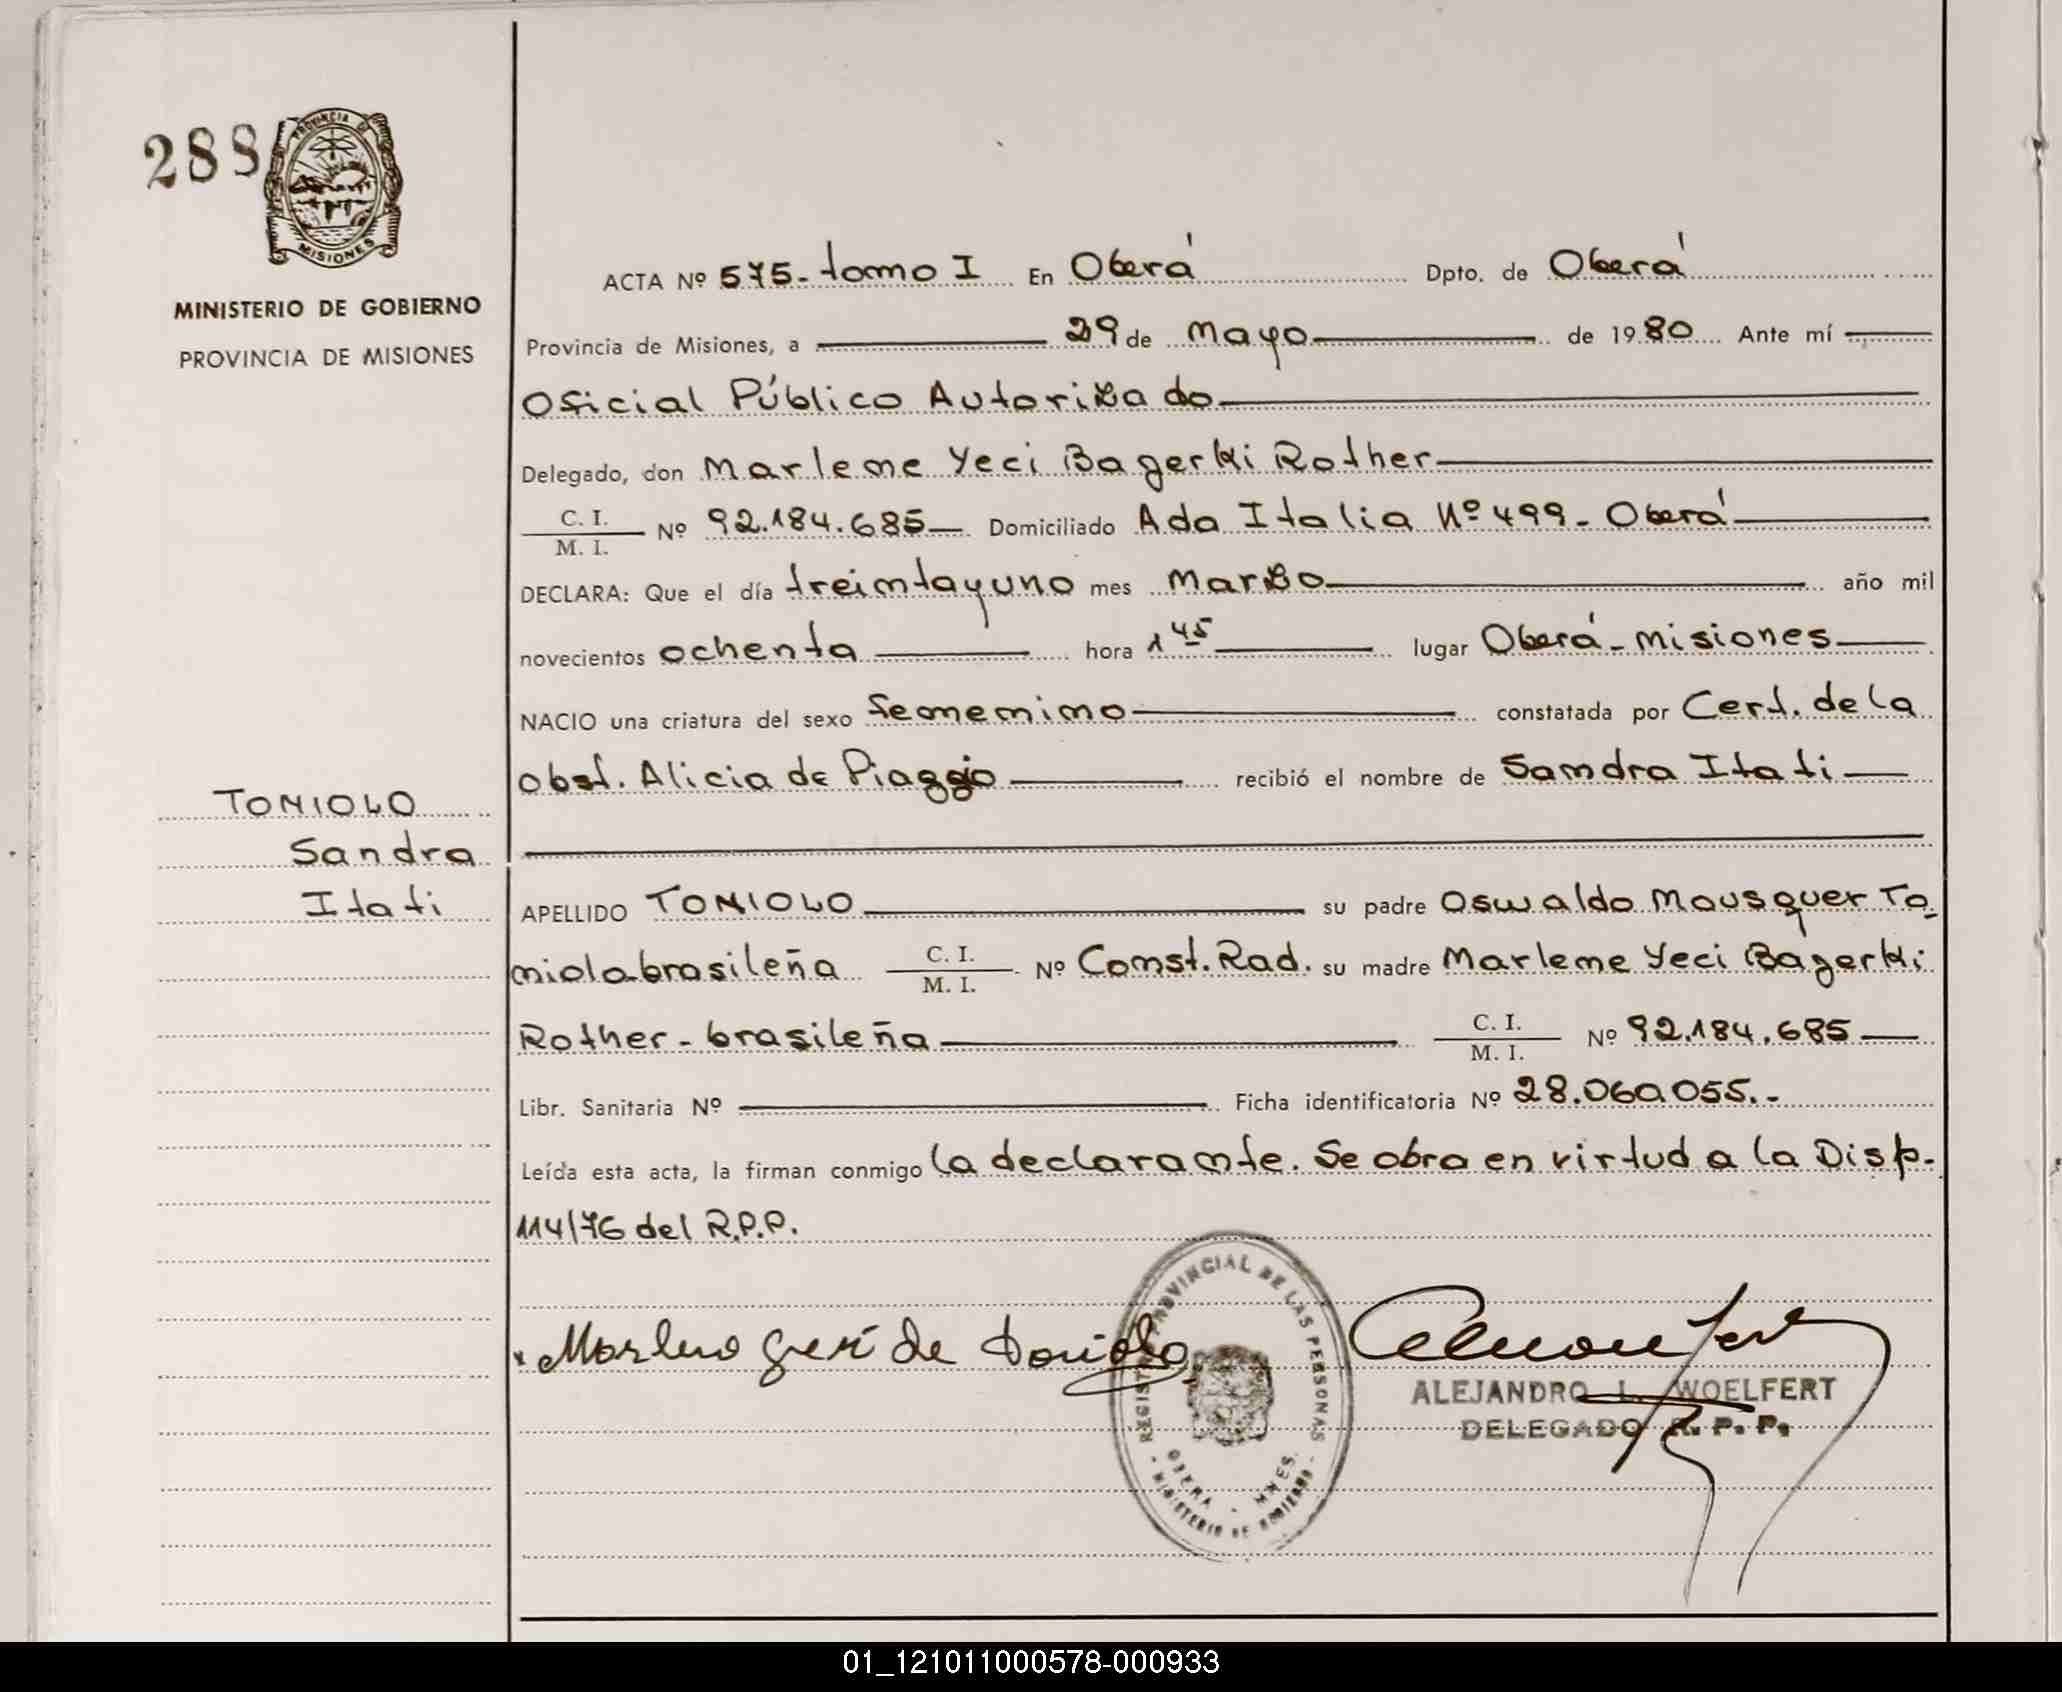 288
PROVINCIA DE
MISIONES
MINISTERIO DE GOBIERNO
PROVINCIA DE MISIONES
ACTA Nº 575- tomo I En Oberá Dpto. de Oberá
Provincia de Misiones, a 29 de Mayo de 1980 Ante mí
Oficial Público Autorizado
Delegado, don Marlene Yeci Bagerki Rother
C. I.
M. I. Nº 92.184.685 Domiciliado Ada Italia Nº 499- Oberá
DECLARA: Que el día treintayuno mes Marzo año mil
novecientos ochenta hora 1 45 lugar Oberá - Misiones
NACIO una criatura del sexo femenino constatada por Cert. de la
obst. Alicia de Piaggio recibió el nombre de Sandra Itati
TONIOLO
Sandra
Itati
APELLIDO TONIOLO su padre Oswaldo Mousquer To-
niolo brasileña C. I. M. I. Nº Const. Rad. su madre Marlene Yeci Bagerki
Rother - brasileña C. I. M. I. Nº 92.184.685
Libr. Sanitaria Nº Ficha identificatoria Nº 28.060.055.-
Leída esta acta, la firman conmigo la declarante. Se obra en virtud a la Disp.
114/76 del R.P.P.
REGISTRO PROVINCIAL DE LAS PERSONAS
OBERA - MNES.
MINISTERIO DE GOBIERNO
ALEJANDRO L. WOELFERT
DELEGADO R. P. P.
01_121011000578-000933